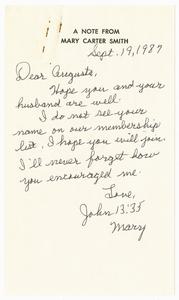 A NOTE FROM
MARY CARTER SMITH
Sept. 19, 1987
Dear Augusta,
Hope you and your
husband are well.
I do not see your
name on our membership
list. I hope you will join.
I'll never forget how
you encouraged me.
Love,
John 13:35
Mary